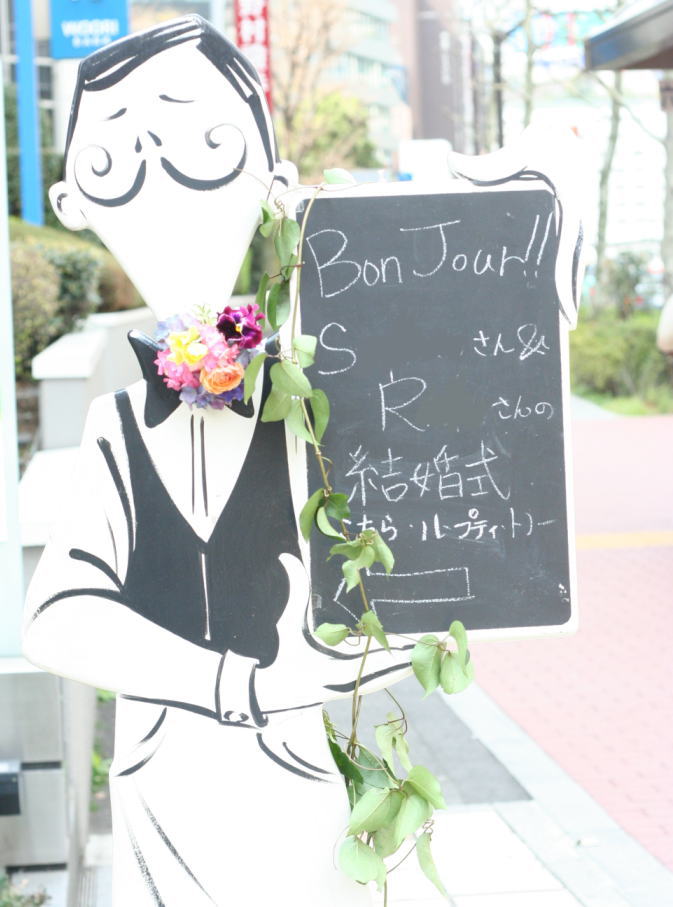 WOORI
野村
Bon Jour!!
S さん&
R さんの
結婚式
ちら・ル・プティ・トノー